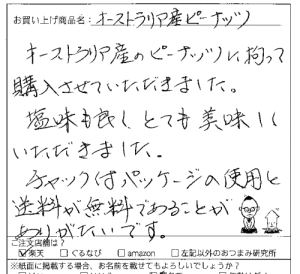 お買い上げ商品名：オーストラリア産ピーナッツ
オーストラリア産のピーナッツに拘って
購入させていただきました。
塩味も良く とても美味しく
いただきました。
チャック付パッケージの使用と
送料が無料であることが
ありがたいです。
ご注文店舗は？
☑楽天 □ぐるなび □amazon □左記以外のおつまみ研究所
※紙面に掲載する場合、お名前を載せてもよろしいでしょうか？